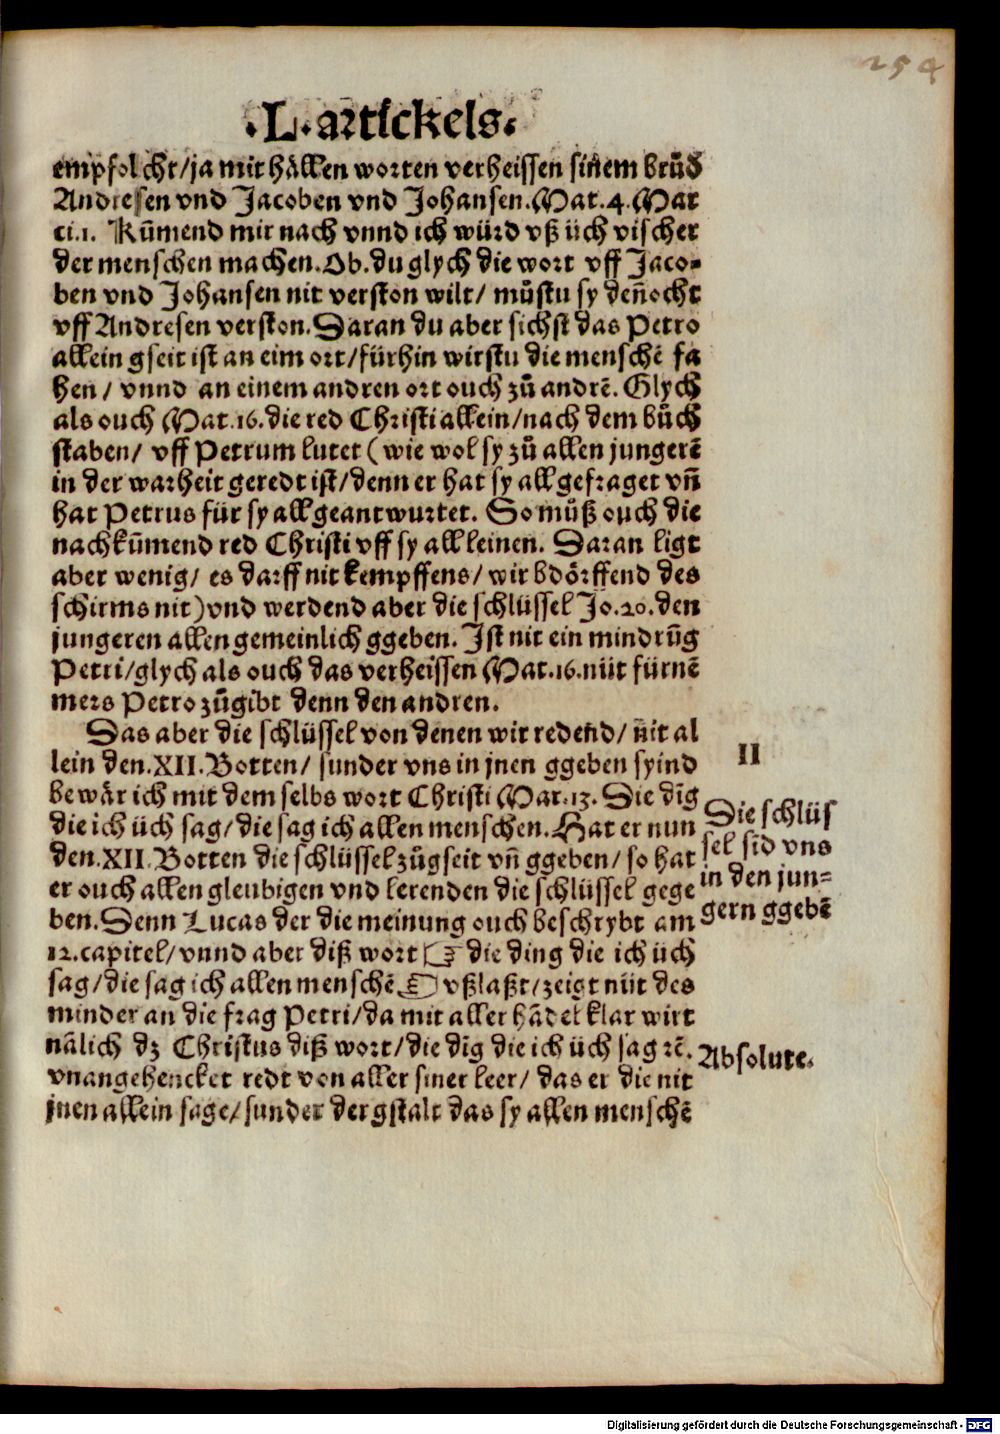 254
.L. artickels.
empfolcht/ja mit hällen worten verheissen sinem brůd
Andresen vnd Jacoben vnd Johansen. Mat. 4. Mat
ti.1. Kūmend mir nach vnnd ich würd vß üch vischer
der menschen machen. Ob. du glych die wort vff Jaco-
ben vnd Johansen nit verston wilt/ můstu sy deñocht
vff Andresen verston. Daran du aber sichst das Petro
allein gseit ist an eim ort/fürhin wirstu die menschē fa
hen/ vnnd an einem andren ort ouch zů andrē. Glych
als ouch Mat.16. die red Christi allein/nach dem bůch
staben/ vff Petrum lutet (wie wol sy zů allen jungerē
in der warheit geredt ist/denn er hat sy all gefraget vñ
hat Petrus für sy all geantwurtet. So můß ouch die
nachkūmend red Christi vff sy all leinen. Daran ligt
aber wenig/ es darff nit kempffens/ wir bdörffend des
schirms nit) vnd werdend aber die schlüssel Jo.20. den
jungeren allen gemeinlich ggeben. Ist nit ein mindrūg
Petri/glych als ouch das verheissen Mat.16. nüt fürnē
mers Petro zůgibt denn den andren.
Das aber die schlüssel von denen wir redend/ nit al
lein den .XII. Botten/ sunder vns in jnen ggeben syind
bewär ich mit dem selbs wort Christi Mar.13. Die dīg
die ich üch sag/die sag ich allen menschen. Hat er nun
den .XII. Botten die schlüssel zůgseit vñ ggeben/ so hat
er ouch allen gleubigen vnd lerenden die schlüssel gege
ben. Denn Lucas der die meinung ouch beschrybt am
12. capitel/ vnnd aber diß wort ☞ die ding die ich üch
sag/die sag ich allen menschē ☜ vßlaßt/zeigt nüt des
minder an die frag Petri/da mit aller hādel klar wirt
nālich dz Christus diß wort/die dīg die ich üch sag ꝛē.
vnangehencket redt von aller siner leer/ das er die nit
jnen allein sage/sunder der gstalt das sy allen menschē
II
Die schlüs
sel sīd vns
in den jun-
gern ggebē
Absolute.
Digitalisierung gefördert durch die Deutsche Forschungsgemeinschaft - DFG